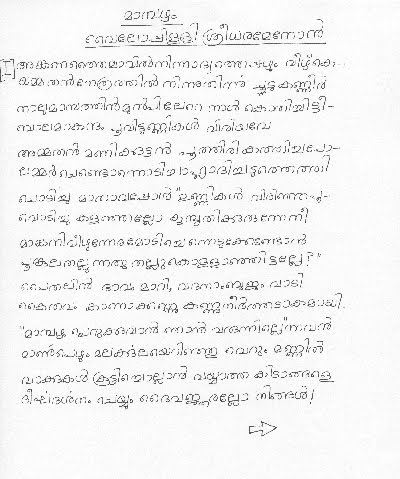 മാമ്പഴം
വൈലോപ്പിള്ളി ശ്രീധരമേനോൻ
അങ്കണത്തൈമാവിൽനിന്നാദ്യത്തെപ്പഴം വീഴ്കെ
യമ്മതൻനേത്രത്തിൽ നിന്നുതിർന്നു ചുടുകണ്ണീർ
നാലുമാസത്തിൻ മുൻപിലേറെ നാൾ കൊതിച്ചിട്ടീ
ബാലമാകന്ദം പൂവിട്ടുണ്ണികൾ വിരിയവേ
അമ്മതൻ മണിക്കുട്ടൻ പൂത്തിരികത്തിച്ചപോ
ലമ്മലർചെണ്ടൊന്നൊടിച്ചാഹ്ലാദിച്ചടുത്തെത്തി
ചൊടിച്ചു മാതാവപ്പോൾ "ഉണ്ണികൾ വിരിഞ്ഞപൂ
വൊടിച്ചു കളഞ്ഞല്ലോ കുസൃതിക്കുരുന്നേ നീ
മാങ്കനിവീഴുന്നേരമോടിച്ചെന്നെടുക്കേണ്ടോൻ
പൂങ്കുലതല്ലുന്നതു തല്ലുകൊള്ളാഞ്ഞിട്ടല്ലേ?"
പൈതലിൻ ഭാവം മാറി, വദനാംബുജം വാടി
കൈതവം കാണാക്കണ്ണു കണ്ണുനീർത്തടാകമായി.
"മാമ്പഴം പെറുക്കുവാൻ ഞാൻ വരുന്നില്ലെ"ന്നവൻ
മാൺപെഴും മലർക്കുലയെറിഞ്ഞു വെറും മണ്ണിൽ
വാക്കുകൾ കൂട്ടിച്ചൊല്ലാൻ വയ്യാത്ത കിടാങ്ങളെ
ദീർഘദർശനം ചെയ്യും ദൈവജ്ഞരല്ലോ നിങ്ങൾ!